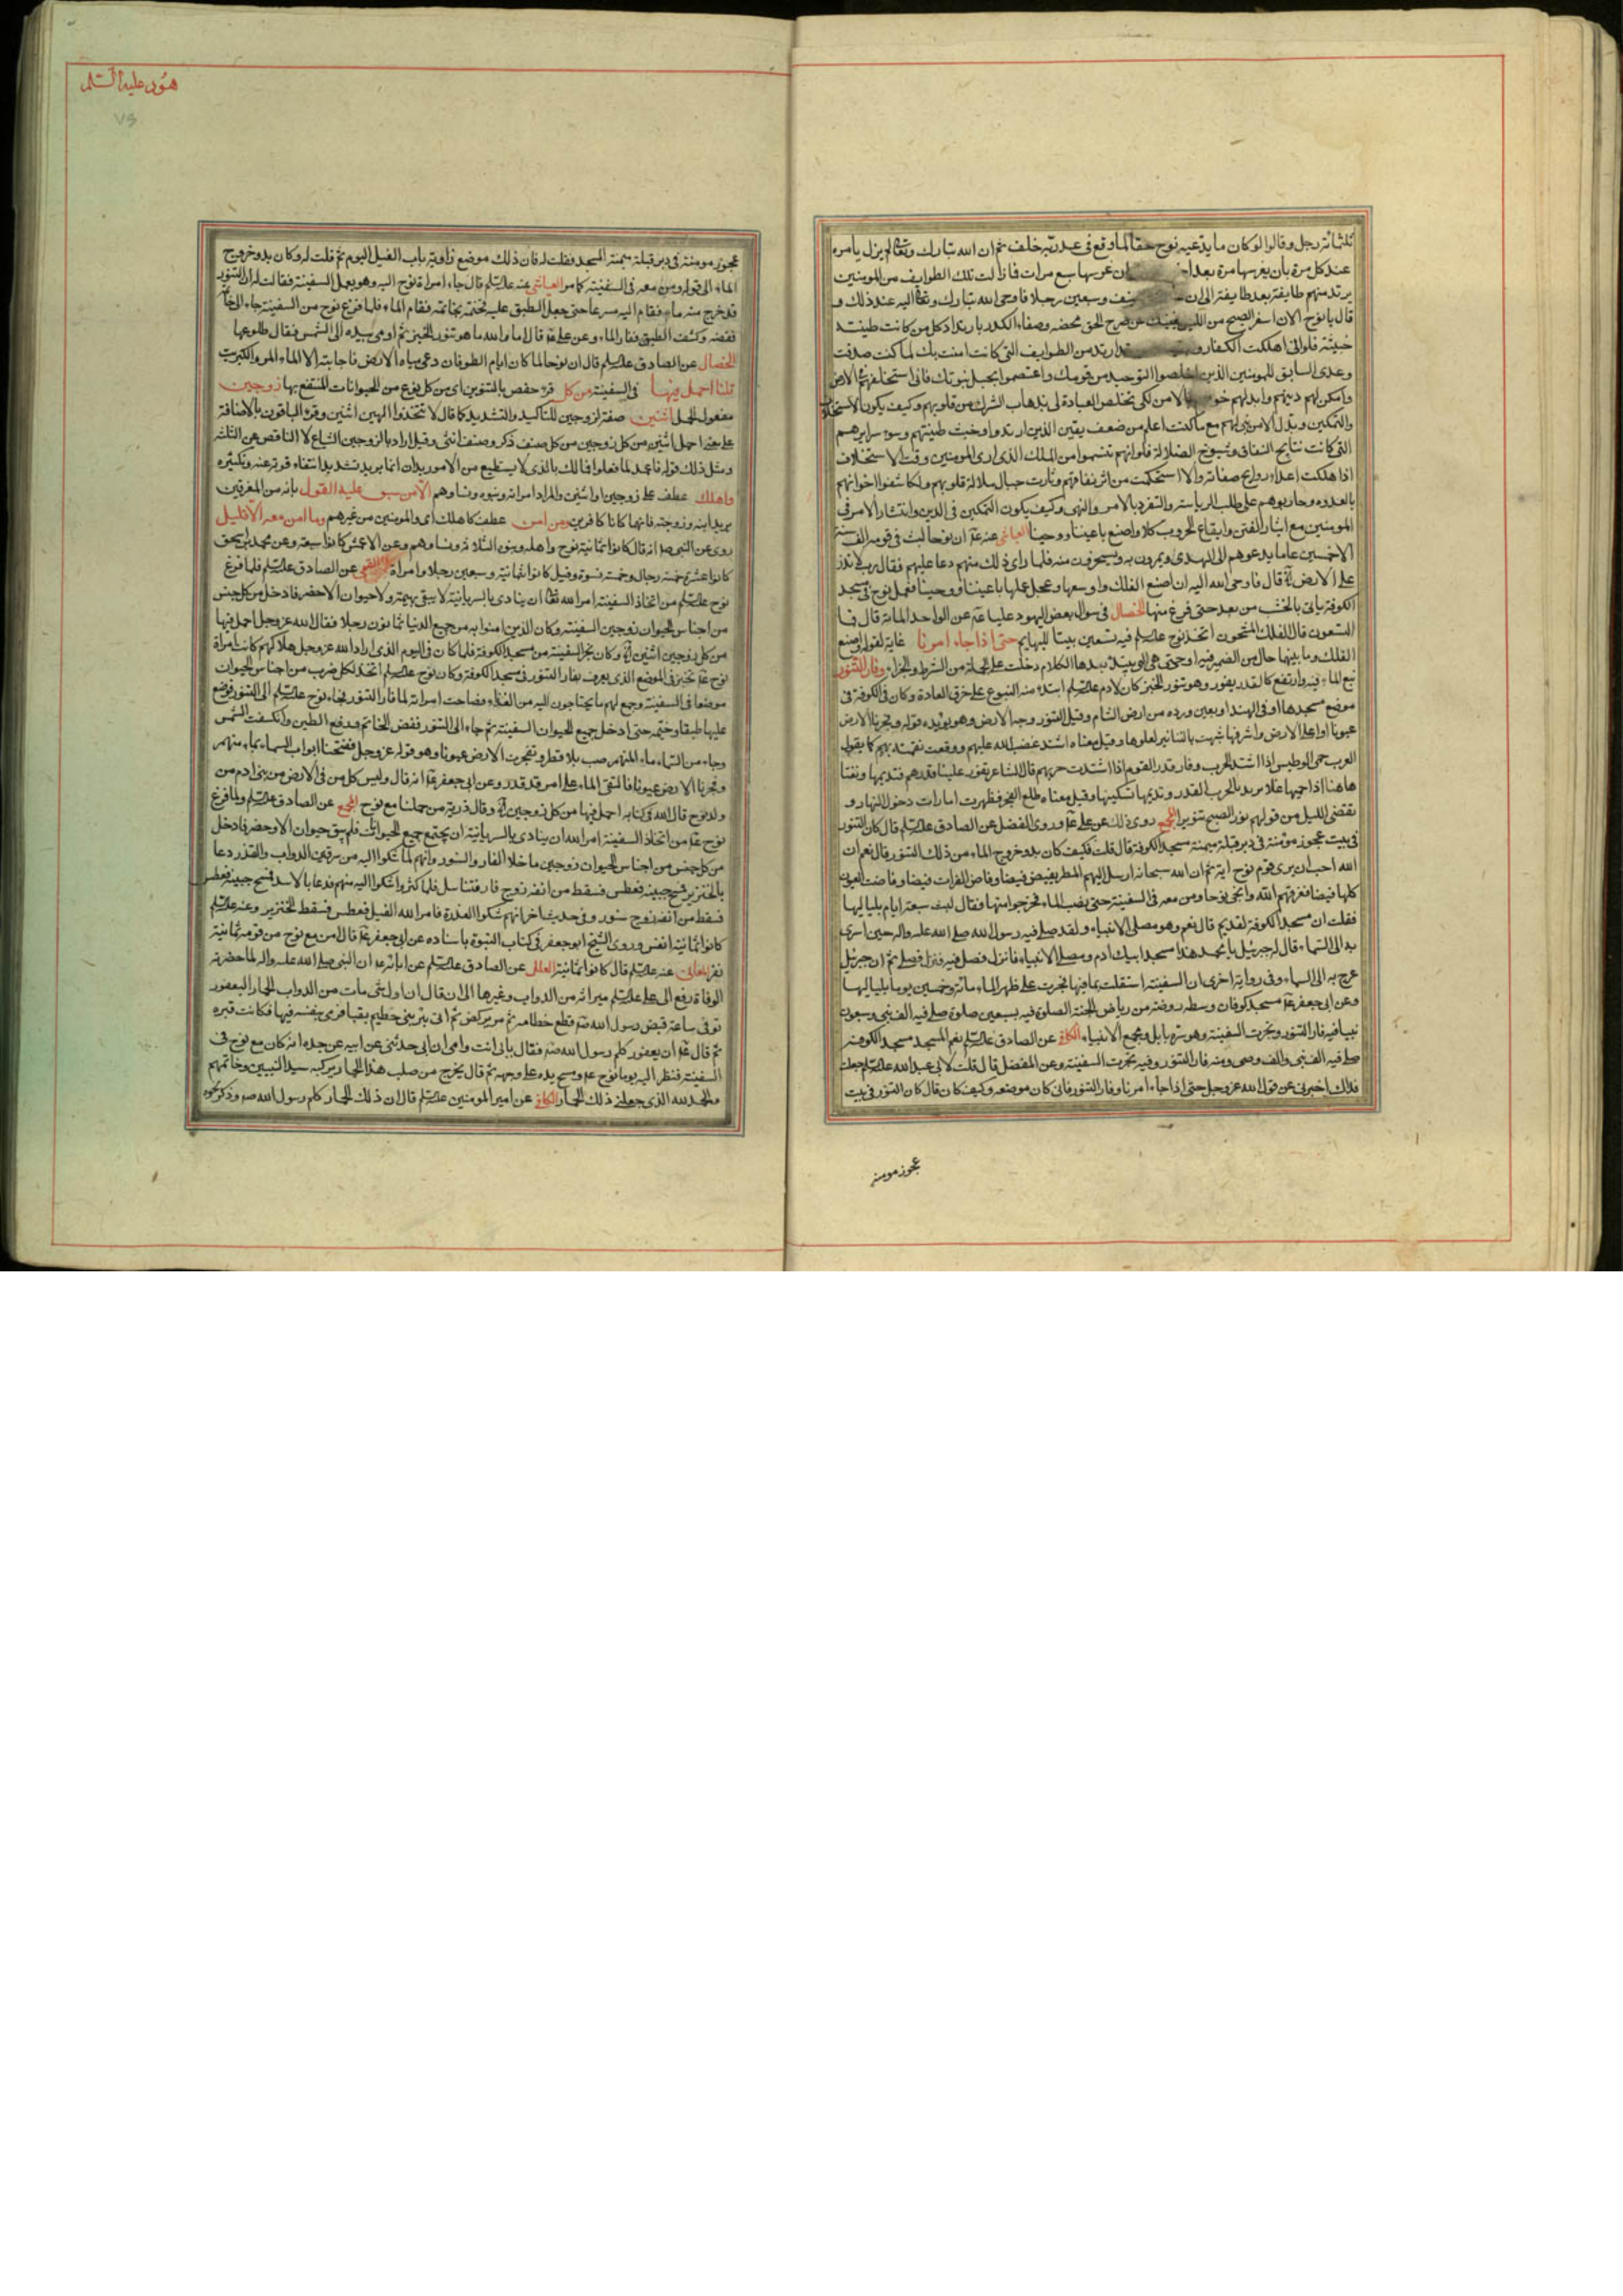 ثلثمائة رجل وقالوا لو كان ما يدعيه نوح حقا لما وقع في عبد ربه خلف ثم ان الله تبارك وتعالى لم يزل يأمره
عند كل مرة بأن يغرسها مرة بعد ان غرسها سبع مرات فما زالت تلك الطوايف من المومنين
يرتد منهم طايفة بعد طايفة الى ان نيف وسبعين رجلا فاوحى الله تبارك وتعالى اليه عند ذلك و
قال يا نوح الان اسفر الصبح من الليل صرح الحق محضه وصفاء الكدر بارتداد كل من كانت طينته
خبيثة فلو اني اهلكت الكفار و ارتد من الطوايف التي كانت امنت بك لما كنت صدقت
وعدى السابق للمومنين الذين اخلصوا التوحيد من قومك واعتصموا بحبل نبوتك فاني استخلفهم في الارض
وامكن لهم دينهم وابدلهم بالامن لكى تخلص العبادة لى بذهاب الشرك من قلوبهم وكيف يكون الاستخلاف
والتمكين وبدل الامن مني لهم مع ما كنت اعلم من ضعف يقين الذين ارتدوا وخبث طينتهم وسوء سرايرهم
التي كانت نتايج النفاق وشبوح الضلالة فلو انهم تنسموا من الملك الذي ارى المومنين وقت الاستخلاف
اذا هلكت اعداؤ روايح صفاته والا استحكمت من اثر نفاقهم وثارت حبال ضلالة قلوبهم ولكاشفوا اخوانهم
بالعداوه وحاربوهم على طلب الرياسة والتفرد بالامر والنهى وكيف يكون التمكين في الدين وانتشار الامر في
المومنين مع اثار الفتن وايقاع الحروب كلا واصنع باعيننا ووحينا العياشي عنه ع ان نوحا لبث في قومه الف سنة
الا خمسين عاما يدعوهم الى الهدى ويمرون به ويسخرون منه فلما راى ذلك منهم دعا عليهم فقال رب لا تذر
على الارض قال فاوحى الله اليه ان اصنع الفلك واوسعها وعجل عملها باعيننا ووحينا فعمل نوح في مسجد
الكوفة ياتي بالخشب من بعد حتى فرغ منها الخصال في سوال بعض اليهود عليا ع عن الواحد الى المائة قال فما
التسعون قال الفلك المشحون اتخذ نوح عليه السلم فيه تسعين بيتا للبهايم حتى اذا جاء امرنا غاية لقوله ويصنع
الفلك وما بينهما حال من الضمير فيه او حتى هي التي يبتدء بعدها الكلام دخلت على الجملة من الشرط والجزاء وفار التنور
نبع الماء فيه وارتفع كالقدر يفور وهو تنور الخبز كان لادم عليه السلم ابتدء منه النبوع على خرق العادة وكان في الكوفة في
موضع مسجدها او في الهند او بعين ورده من ارض الشام وقيل التنور وجه الارض وهو يؤيده قوله وفجرنا الارض
عيونا او اعلى الارض واشرفها شبهت بالتنانير لعلوها وقيل معناه اشتد غضب الله عليهم ووقعت نقمته بهم كما يقول
العرب حمى الوطيس اذا اشتد الحرب وفار قدر القوم اذا اشتدت حربهم قال الشاعر تفور علينا قدرهم فنديمها ونفثا
ها هنا اذا حميها غلا يريد بالحرب القدر ونديمها تسكينها وقيل معناه طلع الفجر فظهرت امارات دخول النهار و
تقضى الليل من قولهم نور الصبح تنويرا المجمع روى ذلك عن على ع وروى المفضل عن الصادق عليه السلم قال كان التنور
في بيت عجوز مؤمنة في دبر قبلة ميمنة مسجد الكوفة قال قلت فكيف كان بدء خروج الماء من ذلك التنور قال نعم ان
الله احب ان يرى قوم نوح اية ثم ان الله سبحانه ارسل اليهم المطر يفيض فيضا وفاض الفرات فيضا وفاضت العيون
كلها فيضا فغرقهم الله وانجى نوحا ومن معه في السفينة حتى نضب الماء فخرجوا منها فقال لبث سبعة ايام بلياليها
فقلت ان مسجد الكوفة لقديم قال نعم وهو مصلى الانبياء ولقد صلى فيه رسول الله صلى الله عليه واله حين اسرى
به الى السماء قال له جبرئيل يا محمد هذا مسجد ابيك ادم ومصلى الانبياء فانزل فصل فيه فنزل فصلى ثم ان جبرئيل
عرج به الى السماء وفي رواية اخرى ان السفينة استقلت بما فيها فجرت على ظهر الماء مائة وخمسين يوما بلياليها
وعن ابي جعفر ع مسجد كوفان وسطه روضة من رياض الجنة الصلوة فيه بسبعين صلوة صلى فيه الف نبي وسبعون
نبيا فيه فار التنور ونجرت السفينة وهو سرة بابل ومجمع الانبياء الكافي عن الصادق عليه السلم نعم المسجد مسجد الكوفة
صلى فيه الف نبي والف وصى ومنه فار التنور وفيه نجرت السفينة وعن المفضل قال قلت لابي عبد الله عليه السلم جعلت
فداك اخبرني عن قول الله عز وجل حتى اذا جاء امرنا وفار التنور فاين كان موضعه وكيف كان قال كان التنور في بيت
عجوز مومنه
هود عليه السلم
عجوز مومنة في دبر قبلة ميمنة المسجد فقلت له فان ذلك موضع زاوية باب الفيل اليوم ثم قلت له وكان بدو خروج
الماء الى قوله ومن معه في السفينة كما مر العياشي عنه عليه السلم قال جاء امراة نوح اليه وهو يعمل السفينة فقالت له ان التنور
قد خرج منه ماء فقام اليه مسرعا حتى جعل الطبق عليه فختمه بخاتمه فقام الماء فلما فرغ نوح من السفينة جاء الى خاتمه
ففضه وكشف الطبق ففار الماء وعن على ع قال اما والله ما هو تنور الخبز ثم اومى بيده الى الشمس فقال طلوعها
الخصال عن الصادق عليه السلم قال ان نوحا لما كان ايام الطوفان دعى مياه الارض فاجابته الا الماء المر والكبريت
قلنا احمل فيها في السفينة من كل قرء حفص بالتنوين اى من كل نوع من الحيوانات المنتفع بها زوجين
مفعول احمل اثنين صفة لزوجين للتاكيد والتشديد كما قال لا تتخذوا الهين اثنين وقرء الباقون بالاضافة
على معنى احمل اثنين من كل زوجين من كل صنف ذكر وصنف انثى وقيل اراد بالزوجين الشياع لا الناقص عن الثلثة
ومثل ذلك قوله فاعمد لما فعلوا فما لك بالذى لا يستطيع من الامور يدان انما يريد تشديد انتفاء قوته عنه وتكثيره
واهلك عطف على زوجين او اثنين والمراد امراته وبنوه ونساوهم الا من سبق عليه القول بانه من المغرقين
يريد ابنه وزوجته فانهما كانا كافرين ومن امن عطف كاهلك اى والمومنين من غيرهم وما امن معه الا قليل
روى عن النبي ص انه قال كانوا ثمانية نوح واهله وبنوه الثلاثة ونساوهم وعن الاعمش كانوا سبعة وعن محمد بن اسحق
كانوا عشرة خمسة رجال وخمسة نسوة وقيل كانوا ثمانية وسبعين رجلا وامراة القمي عن الصادق عليه السلم فلما فرغ
نوح عليه السلم من اتخاذ السفينة امر الله تعالى ان ينادى بالسريانية لا يبقى بهيمة ولا حيوان الا حضر فادخل من كل جنس
من اجناس الحيوان زوجين السفينة وكان الذين امنوا به من جميع الدنيا ثمانون رجلا فقال الله عز وجل احمل فيها
من كل زوجين اثنين وكان نجر السفينة من مسجد الكوفة فلما كان في اليوم الذي اراد الله عز وجل هلاكهم كانت امراة
نوح ع تخبز في الموضع الذي يعرف بفار التنور في مسجد الكوفة وكان نوح عليه السلم اتخذ لكل ضرب من اجناس الحيوان
موضعا في السفينة وجمع لهم ما يحتاجون اليه من الغذاء وصاحت امراته لما فار التنور فجاء نوح عليه السلم الى التنور فوضع
عليها طبقا وختمه حتى ادخل جميع الحيوان السفينة ثم جاء الى التنور ففض الخاتم ورفع الطين وانكسفت الشمس
وجاء من السماء ماء المنهمر صب بلا قطر وتفجرت الارض عيونا وهو قوله عز وجل ففتحنا ابواب السماء بماء منهمر
وفجرنا الارض عيونا فالتقى الماء على امر قد قدر وعن ابي جعفر ع انه قال وليس كل من في الارض من بني ادم من
ولد نوح قال الله في كتابه احمل فيها من كل زوجين وقال ذرية من حملنا مع نوح المجمع عن الصادق عليه السلم ولما فرغ
نوح ع من اتخاذ السفينة امر الله ان ينادى بالسريانية ان يجتمع جميع الحيوانات فلم يبق حيوان الا وحضر فادخل
من كل جنس من اجناس الحيوان زوجين ما خلا الفار والسنور وانهم لما شكوا اليه من سرقين الدواب والقذر دعا
بالخنزير فمسح جبينه فعطس فسقط من انفه زوج فار فتناسل فلما كثروا شكوا اليه منهم فدعا بالاسد فمسح جبينه فعطس
فسقط من انفه زوج سنور وفي حديث اخر انهم شكوا العذرة فامر الله الفيل فعطس فسقط الخنزير وعنه عليه السلم
كانوا ثمانية انفس وروى الشيخ ابو جعفر في كتاب النبوة باسناده عن ابي جعفر ع قال امن مع نوح من قومه ثمانية
نفر المعاني عنه عليه السلم قال كانوا ثمانية العلل عن الصادق عليه السلم عن ابائه ع ان النبي صلى الله عليه واله لما حضرته
الوفاة دفع الى على عليه السلم ميراثه من الدواب وغيرها الى ان قال ان اول شئ مات من الدواب الحمار اليعفور
توفى ساعة قبض رسول الله ص قطع خطامه ثم مر يركض ثم اتى بئر بني خطيم بقبا فرمى بنفسه فيها فكانت قبره
ثم قال ع ان يعفور كلم رسول الله ص فقال بابي انت وامى ان ابي حدثني عن ابيه عن جده انه كان مع نوح في
السفينة فنظر اليه يوما نوح ع ومسح يده على وجهه ثم قال يخرج من صلب هذا الحمار يركبه سيد النبيين وخاتمهم
والحمد لله الذي جعلني ذلك الحمار الكافي عن امير المومنين عليه السلم قال ان ذلك الحمار كلم رسول الله ص وذكر نحوه